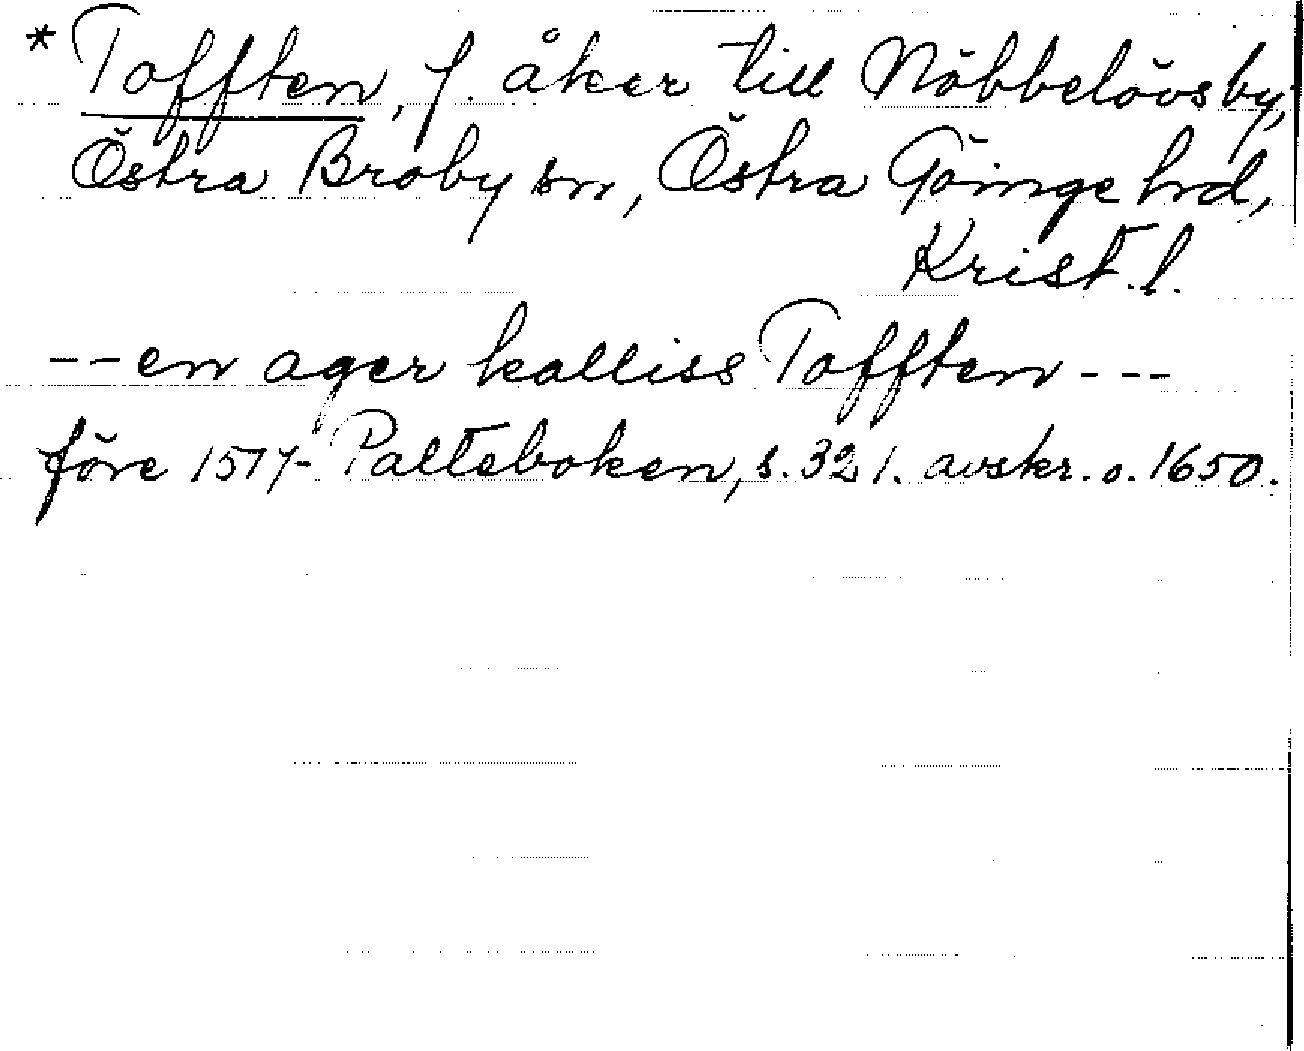 * Tofften, f. åker till Nöbbelövs by,
Östra Broby sn, Östra Göinge hd,
Krist. l.
-- en ager kalliss Tofften ---
före 1517- Palteboken, s. 321. avskr. o. 1650.